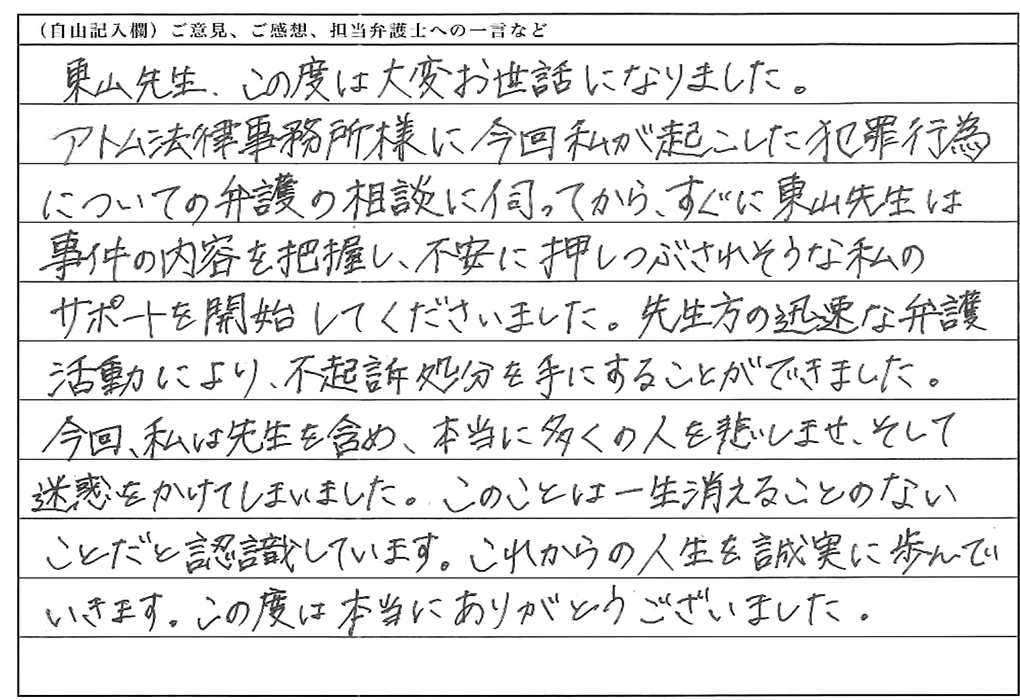 （自由記入欄）ご意見、ご感想、担当弁護士への一言など
東山先生、この度は大変お世話になりました。
アトム法律事務所様に今回私が起こした犯罪行為
についての弁護の相談に伺ってから、すぐに東山先生は
事件の内容を把握し、不安に押しつぶされそうな私の
サポートを開始してくださいました。先生方の迅速な弁護
活動により、不起訴処分を手にすることができました。
今回、私は先生を含め、本当に多くの人を悲しませ、そして
迷惑をかけてしまいました。このことは一生消えることのない
ことだと認識しています。これからの人生を誠実に歩んで
いきます。この度は本当にありがとうございました。